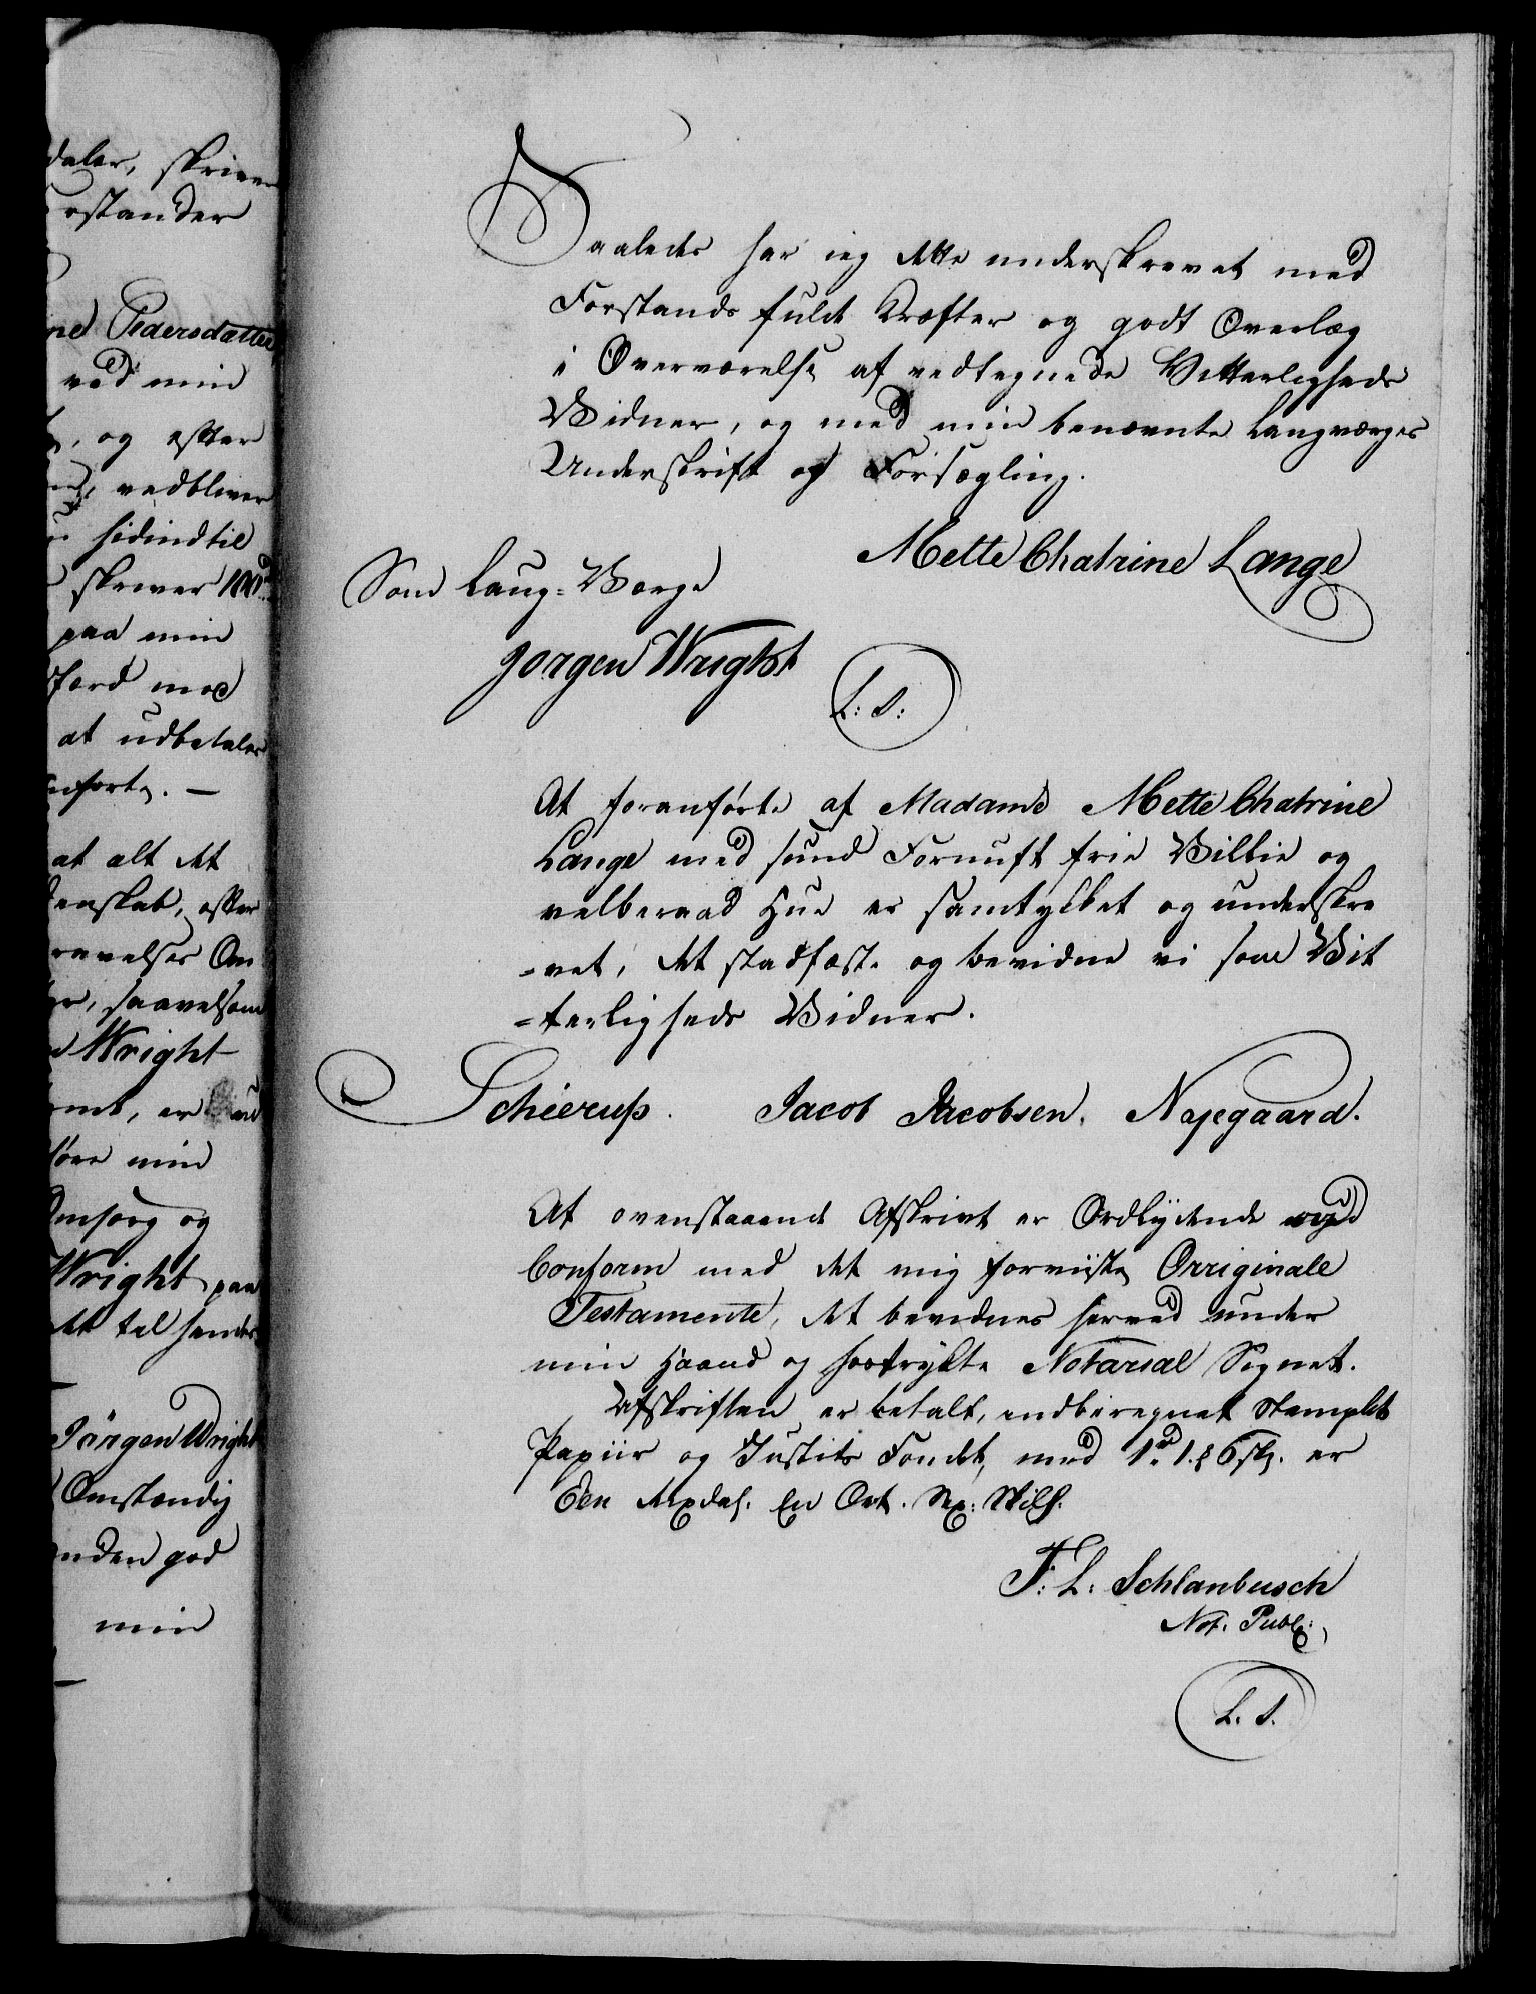 daler, skriver
rstander
ne Pedersdatter
ved min
, og efter
, vedbliver
hidindtil
skriver 100
paa min
færd med
at udbetaler
nførte. —
at alt det
enskab, efter
ravelses Om
er, saavelsom
Wright
, er
føre min
Omsorg og
Wright paa
det til hendes
Jörgen Wright
Omstændig
nden god
min
Saaledes har ieg dette underskrevet med
Forstands fulde Kræfter og godt Overlæg
i Overværelse af vedtegnede Vitterligheds
Vidner, og med min benævnte Laugværges
Underskrift og Forsægling.
Mette Chatrine Lange
Som Laug-Værge
Jørgen Wright
L: S:
At foranførte af Madame Mette Chatrine
Lange med sund Fornuft frie Villie og
velberaad Hue er samtykket og underskre
-vet, det stadfæste og bevidne vi som Vit
=terligheds Vidner.
Schierup. Jacob Jacobsen. Nyegaard.
At ovenstaaende Afskrivt er Ordlydende og
Conform med det mig forevüste Orriginale
Testamente, det bevidnes herved under
min Haand og hostrykte Notarial Signet.
Afskriften er betalt, indberegnet Stemplet
Papiir og Justits Fondet, med 1rd 1 ß 6 sk. er
Een Rixdal. En Ort. Sex: Skill.
F: L: Schlanbusch
Not. Publ:
L. S.